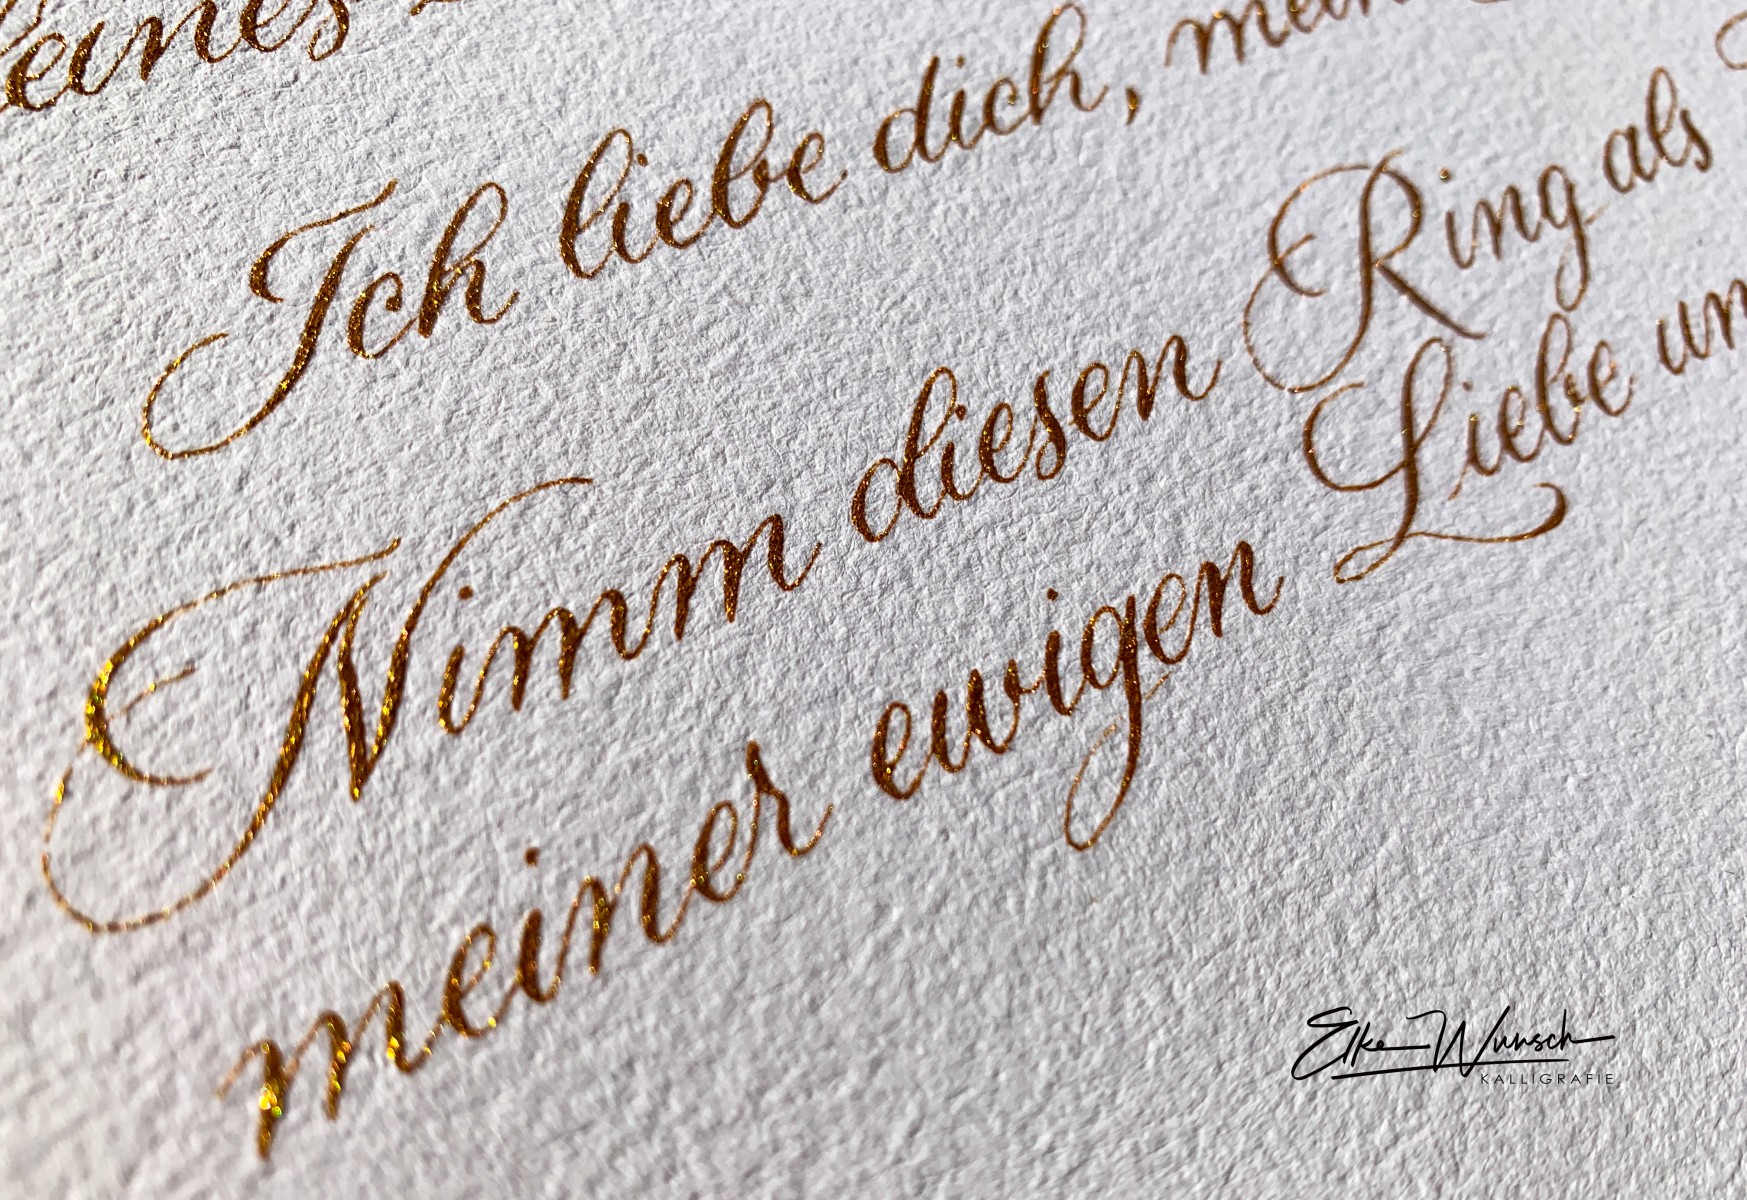 Ich liebe dich,
Nimm diesen Ring als
meiner ewigen Liebe
Elke Wunsch
KALLIGRAFIE